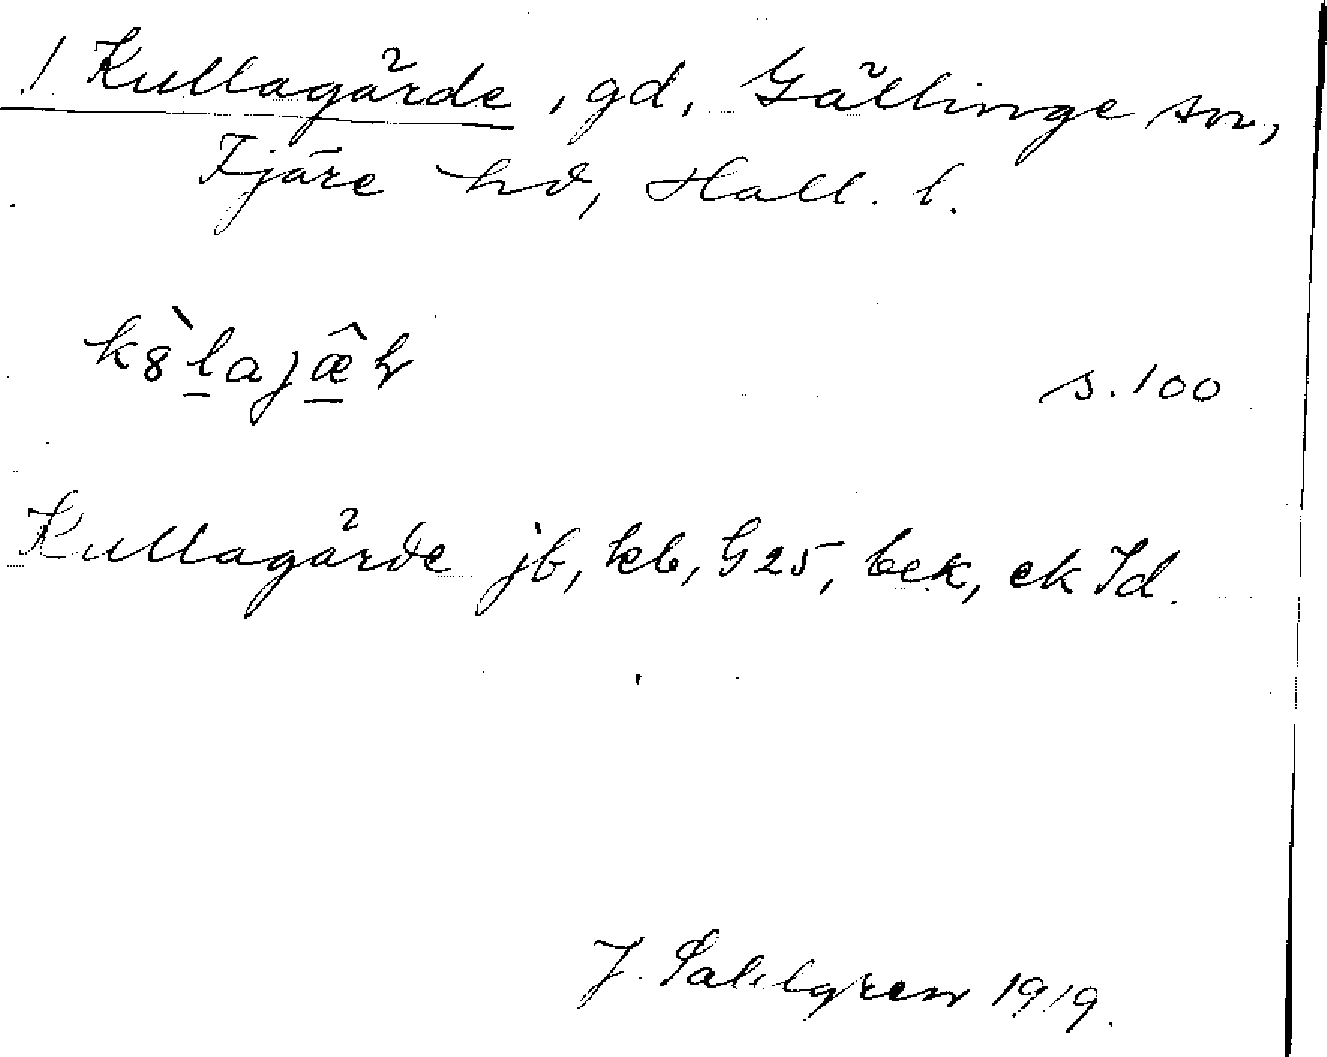 1. Kullagärde, gd, Gällinge sn,
Fjäre hd, Hall. l.
k8̀lajæ̂r s. 100
Kullagärde jb, kb, G25, bek, ek Id.
J. Sahlgren 1919.